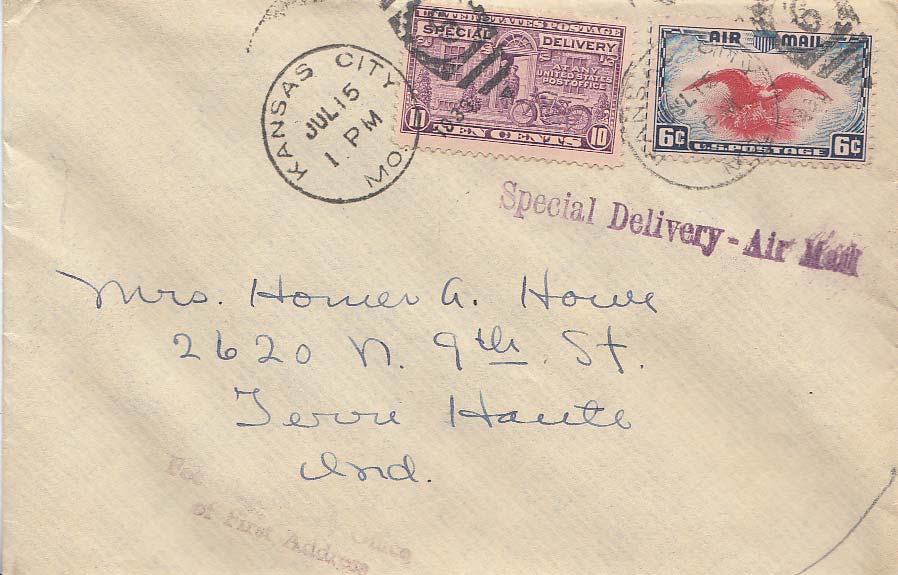 UNITED STATES POSTAGE
SPECIAL DELIVERY
AT ANY
UNITED STATES
POST OFFICE
10 TEN CENTS 10
AIR MAIL
6¢ U.S. POSTAGE 6¢
KANSAS CITY
JUL 15
1. PM
MO.
Special Delivery - Air Mail
Mrs. Homer A. Howe
2620 N. 9th St.
Terre Haute
Ind.
Office
of First Address